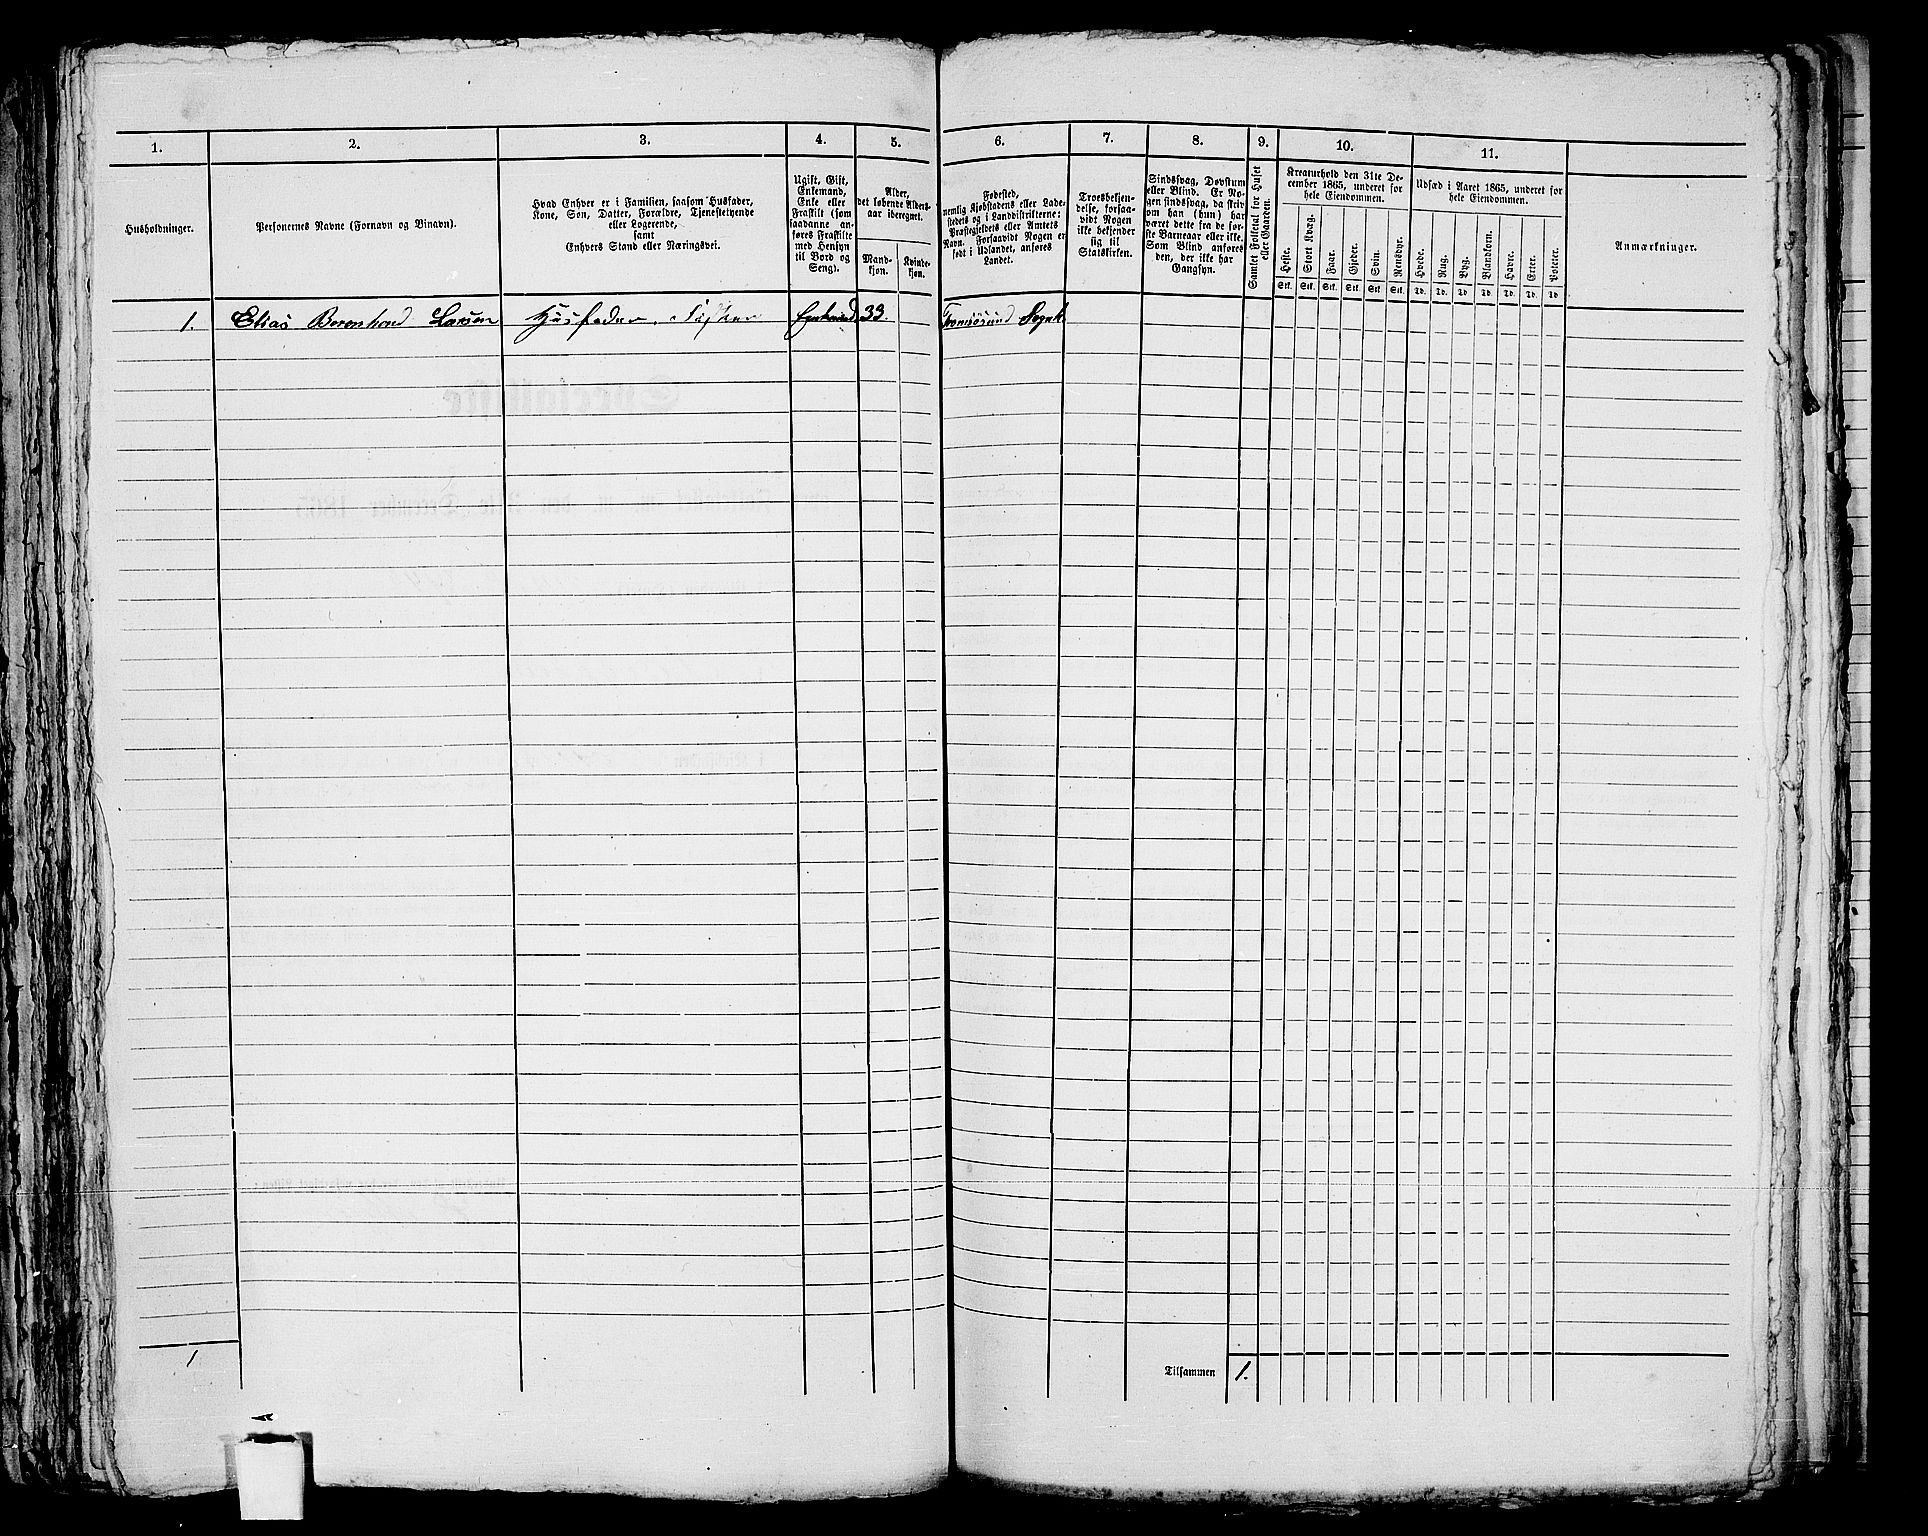 1.
2.
3.
4.
5.
6.
7.
8.
9.
10.
11.
Husholdninger.
Personernes Navne (Fornavn og Binavn).
Hvad Enhver er i Familien, saasom Husfader,
Kone, Søn, Datter, Forældre, Tjenestetyende
eller Logerende,
samt
Enhvers Stand eller Næringsvei.
Ugift, Gift,
Enkemand,
Enke eller
Fraskilt (som
saadanne an-
føres Fraskilte
med Hensyn
til Bord og
Seng).
Alder,
det løbende Alders-
aar iberegnet.
Mand-
kjøn.
Kvinde-
kjøn.
Fødested,
nemlig Kjøbstadens eller Lade-
stedets og i Landdistrikterne:
Præstegjeldets eller Amtets
Navn. Forsaavidt Nogen er
født i Udlandet, anføres
Landet.
Troesbekjen-
delse, forsaa-
vidt Nogen
ikke bekjender
sig til
Statskirken.
Sindssvag, Døvstum
eller Blind. Er No-
gen sindssvag, da skriv
om han (hun) har
været dette fra de før-
ste Barneaar eller ikke.
Som Blind anføres
den, der ikke har
Gangsyn.
Samlet Folketal for Huset
eller Gaarden.
Kreaturhold den 31te De-
cember 1865, underet for
hele Eiendommen.
Udsæd i Aaret 1865, underet for
hele Eiendommen.
Heste.
Stort Kvæg.
Faar.
Gjeder.
Svin.
Rensdyr.
Hvede.
Rug.
Byg.
Blandkorn.
Havre.
Erter.
Poteter.
Stk. Stk. Stk. Stk. Stk. Stk. Td. Td. Td Td. Td. Td. Td
Anmærkninger.
1. Elias Berenhard Larsen Husfader, Fisker Enkemd 33. Tromsøsund Sogn
1
Tilsammen 1.